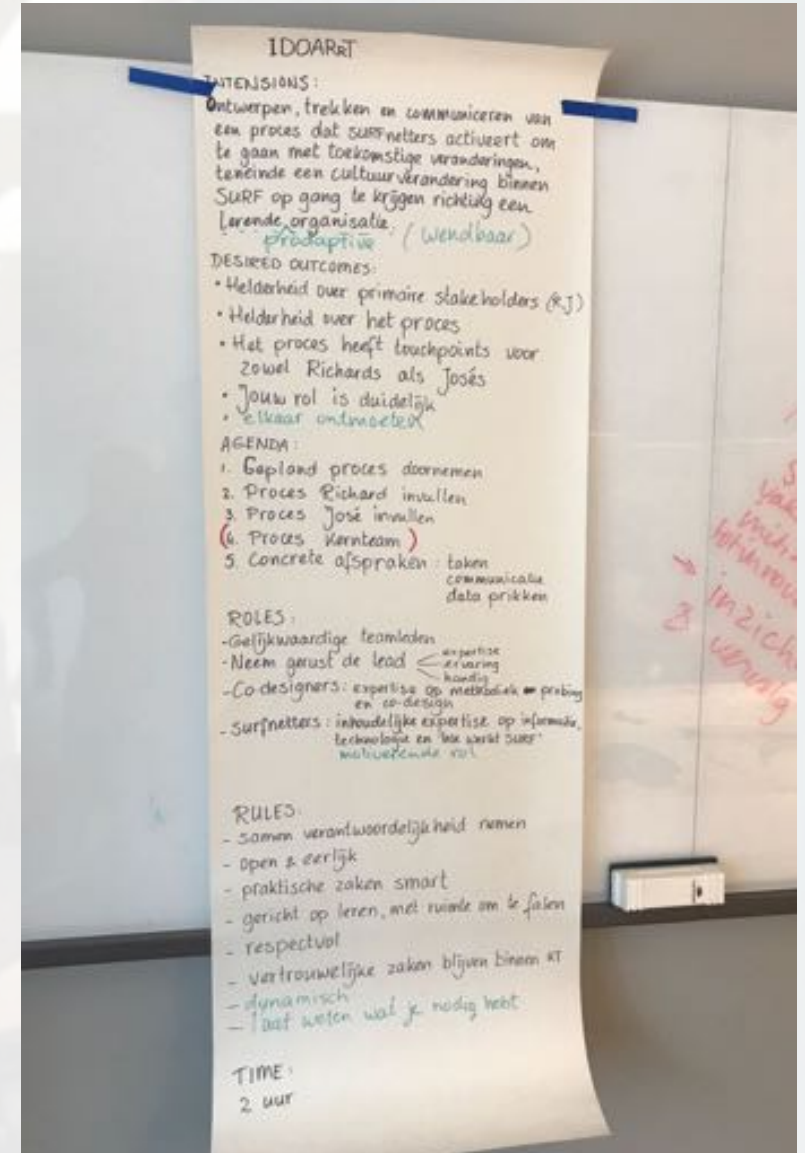 IDOARRT
INTENSIONS:
Ontwerpen, trekken en communiceren van
een proces dat SURFnetters activeert om
te gaan met toekomstige veranderingen,
teneinde een cultuurverandering binnen
SURF op gang te krijgen richting een
Lerende organisatie.
prodaptive (wendbaar)
DESIRED OUTCOMES:
• Helderheid over primaire stakeholders (RJ)
• Helderheid over het proces
• Het proces heeft touchpoints voor
zowel Richards als Josés
• Jouw rol is duidelijk
• elkaar ontmoeten
AGENDA:
1. Gepland proces doornemen
2. Proces Richard invullen
3. Proces José invullen
(4. Proces Kernteam)
5. Concrete afspraken: taken
communicatie
data prikken
ROLES:
- Gelijkwaardige teamleden
- Neem gerust de lead expertise
ervaring
handig
- Co designers: expertise op methodiek probing
en co-design
- Surfnetters: inhoudelijke expertise op informatie,
technologie en 'hoe werkt SURF'
motiverende rol
RULES:
- samen verantwoordelijkheid nemen
- open & eerlijk
- praktische zaken smart
- gericht op leren, met ruimte om te falen
- respectvol
- vertrouwelijke zaken blijven binnen KT
- dynamisch
- laat weten wat je nodig hebt
TIME:
2 uur